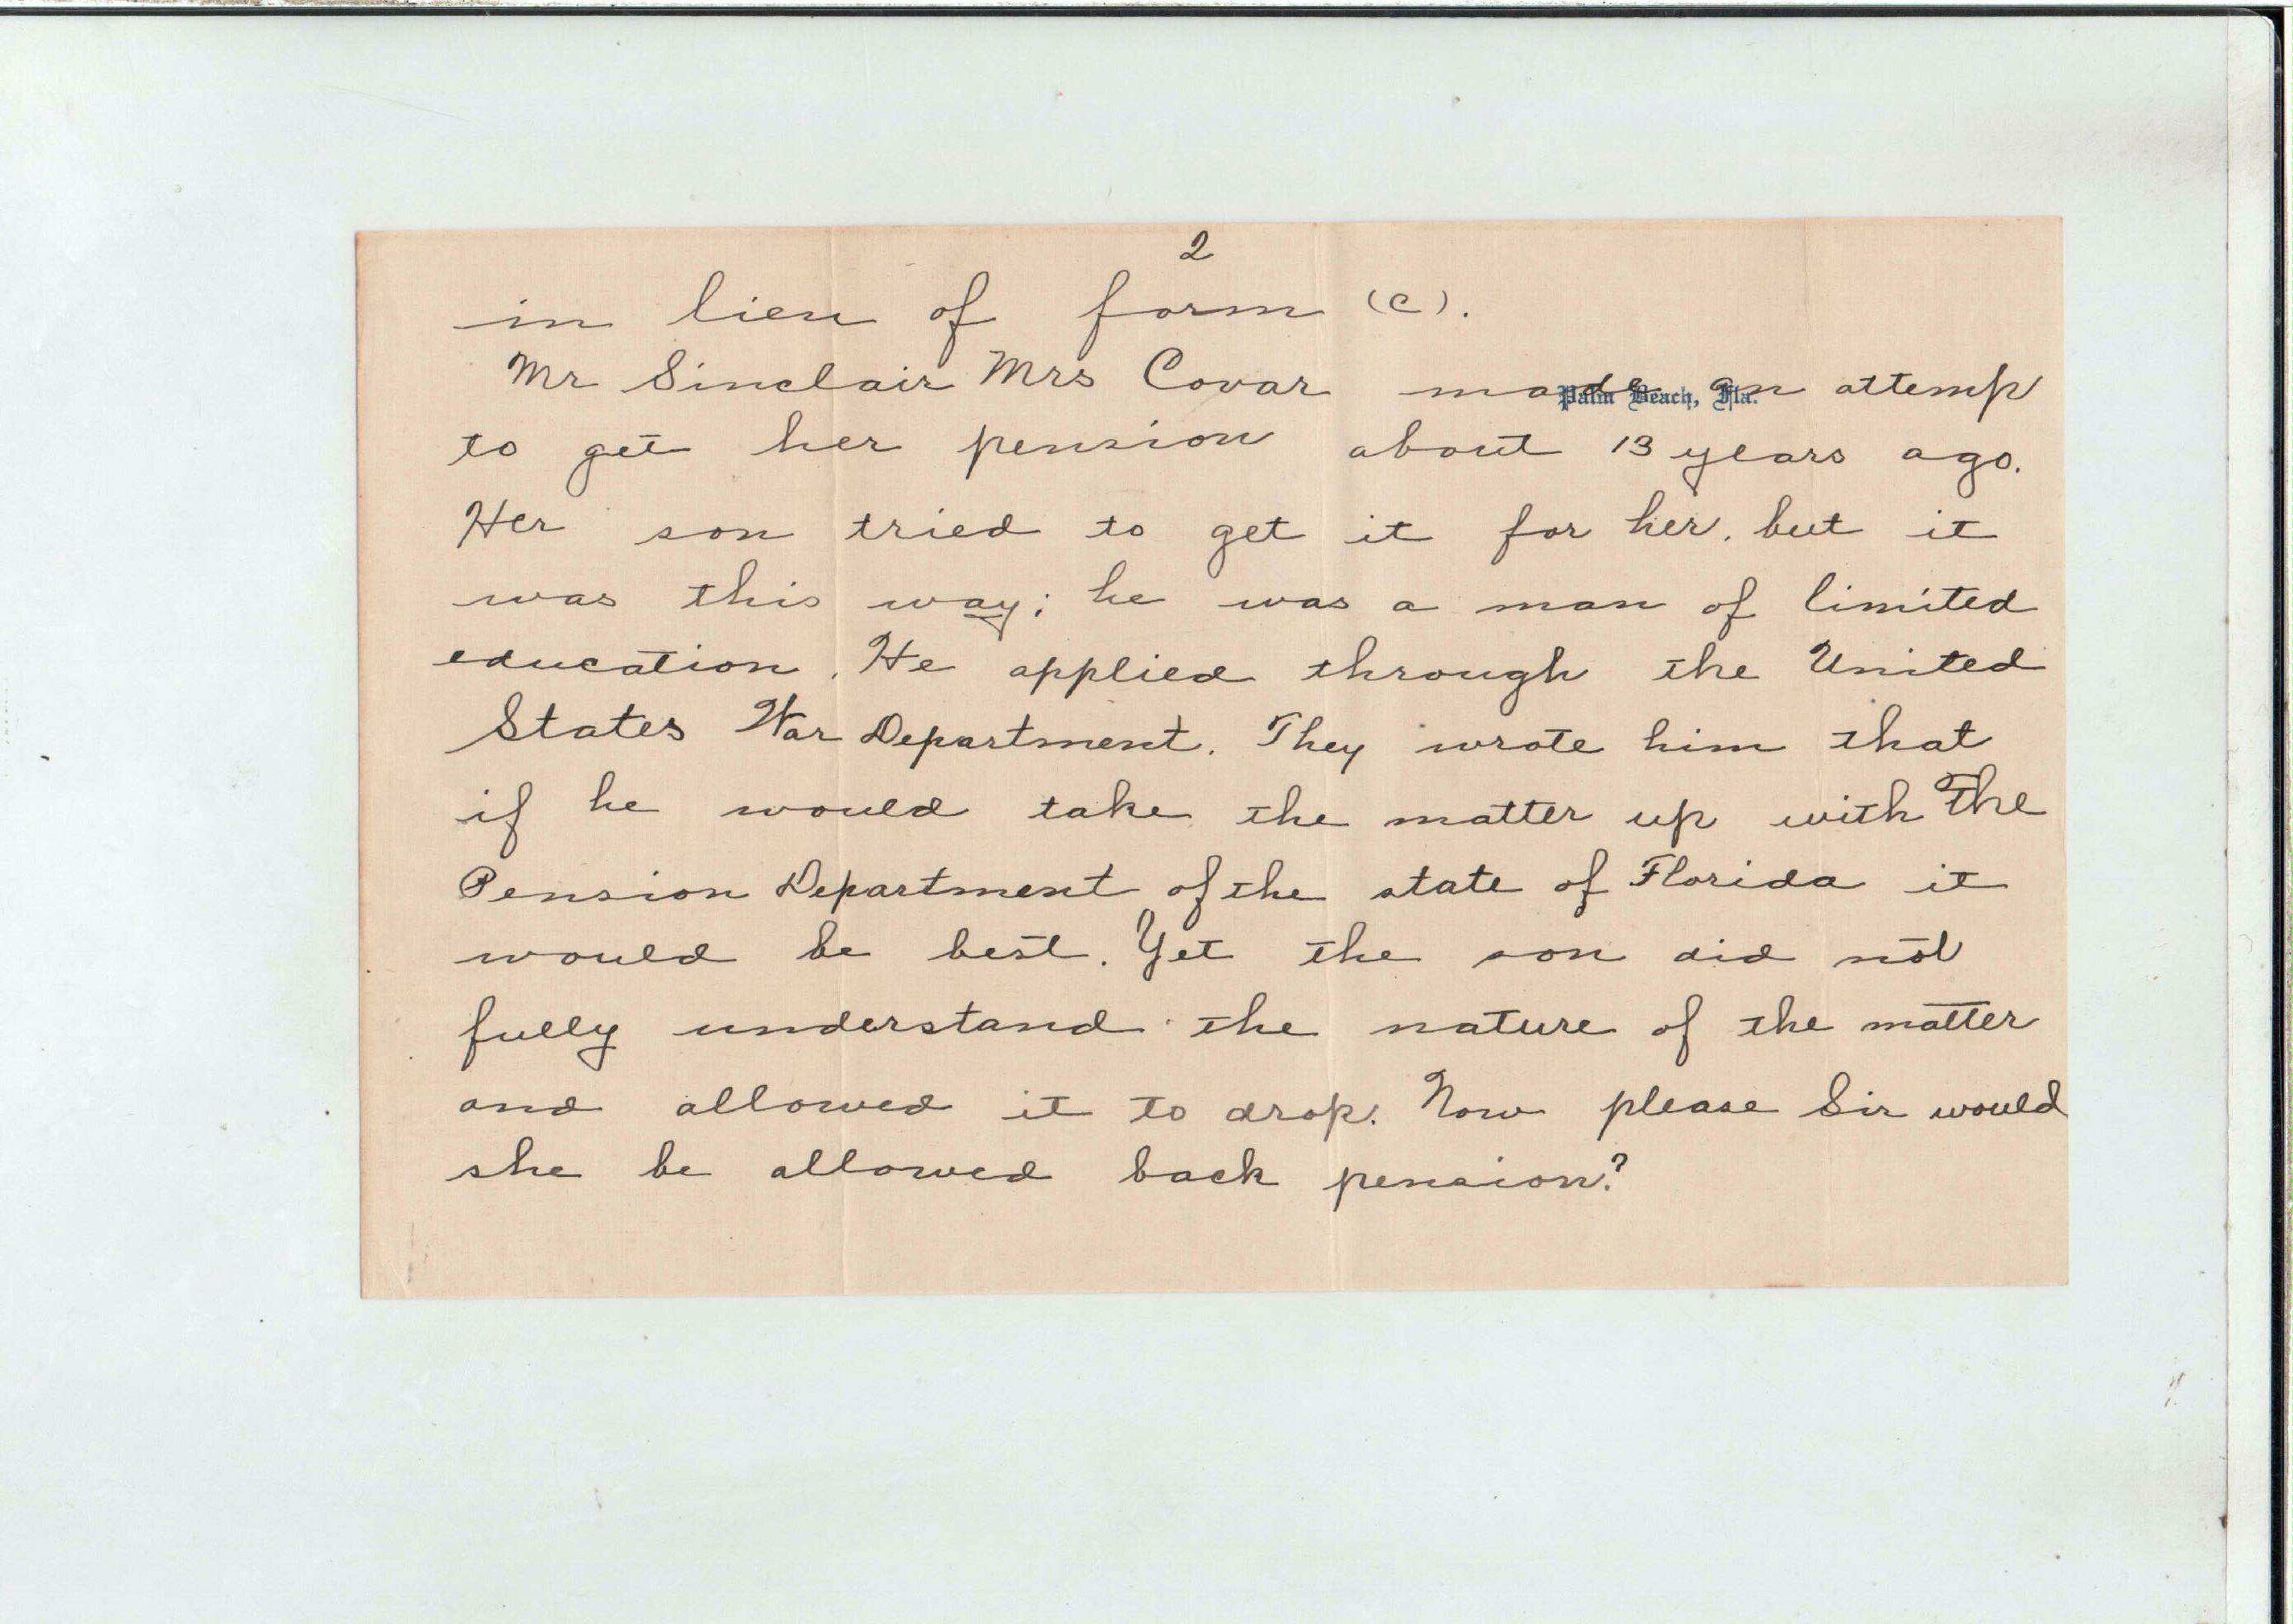 2
in lieu of form (c).
Mr Sinclair Mrs Covar made an attemp
Palm Beach, Fla.
to get her pension about 13 years ago.
Her son tried to get it for her, but it
was this way; he was a man of limited
education. He applied through the United
States War Department. They wrote him that
if he would take the matter up with the
Pension Department of the state of Florida it
would be best. Yet the son did not
fully understand the nature of the matter
and allowed it to drop. Now please Sir would
she be allowed back pension?